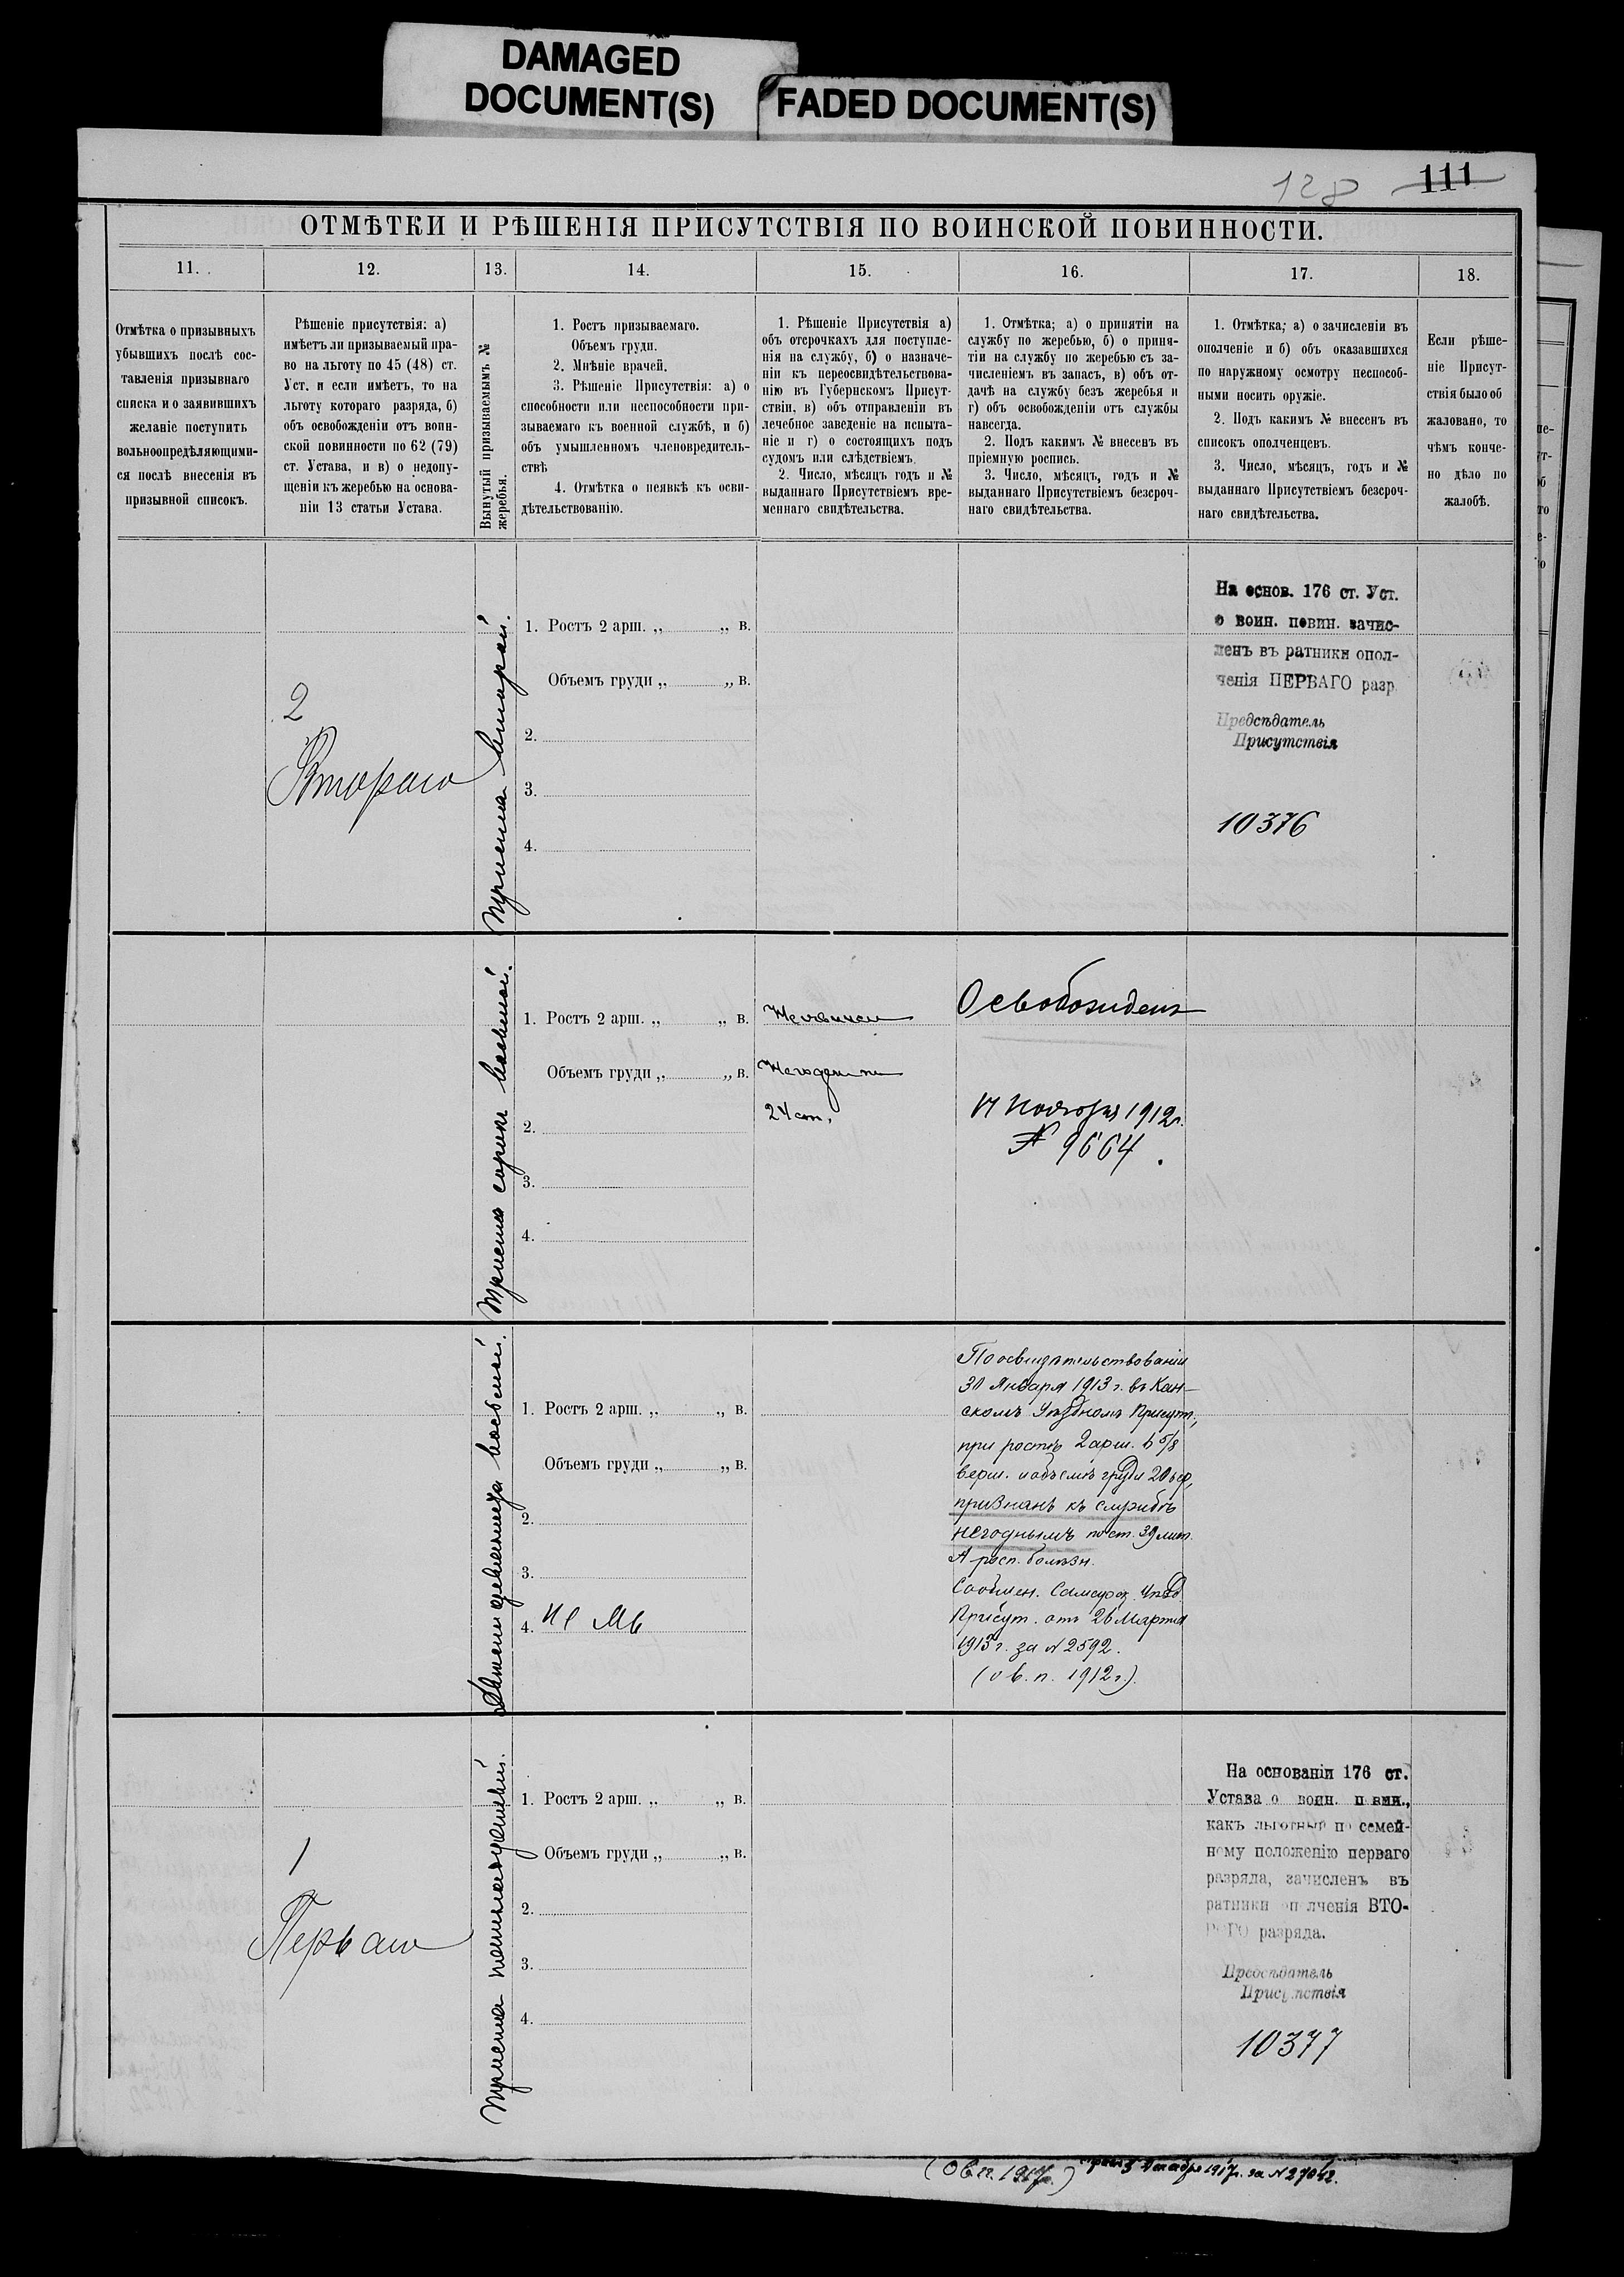 DAMAGED
DOCUMENT(S)
FADED DOCUMENT(S)
128 111
ОТМѢТКИ И РѢШЕНІЯ ПРИСУТСТВІЯ ПО ВОИНСКОЙ ПОВИННОСТИ.
11.
12.
13.
14.
15.
16.
17.
18.
Отмѣтка о призывныхъ
убывшихъ послѣ сос-
тавленія призывнаго
списка и о заявившихъ
желаніе поступить
вольноопредѣляющими-
ся послѣ внесенія въ
призывной списокъ.
Рѣшеніе присутствія: а)
имѣетъ ли призываемый пра-
во на льготу по 45 (48) ст.
Уст. и если имѣетъ, то на
льготу котораго разряда, б)
объ освобожденіи отъ воин-
ской повинности по 62 (79)
ст. Устава, и в) о недопу-
щеніи къ жеребью на основа-
ніи 13 статьи Устава.
Вынутый призываемымъ №
жеребья.
1. Ростъ призываемаго.
Объемъ груди.
2. Мнѣніе врачей.
3. Рѣшеніе Присутствія: а) о
способности или неспособности при-
зываемаго къ военной службѣ, и б)
объ умышленномъ членовредитель-
ствѣ
4. Отмѣтка о неявкѣ къ осви-
дѣтельствованію.
1. Рѣшеніе Присутствія а)
объ отсрочкахъ для поступле-
нія на службу, б) о назначе-
ніи къ переосвидѣтельствова-
нію въ Губернскомъ Присут-
ствіи, в) объ отправленіи въ
лечебное заведеніе на испыта-
ніе и г) о состоящихъ подъ
судомъ или слѣдствіемъ.
2. Число, мѣсяцъ годъ и №
выданнаго Присутствіемъ вре-
меннаго свидѣтельства.
1. Отмѣтка; а) о принятіи на
службу по жеребью, б) о приня-
тіи на службу по жеребью съ за-
численіемъ въ запасъ, в) объ от-
дачѣ на службу безъ жеребья и
г) объ освобожденіи отъ службы
навсегда.
2. Подъ какимъ № внесенъ въ
пріемную роспись.
3. Число, мѣсяцъ, годъ и №
выданнаго Присутствіемъ безсроч-
наго свидѣтельства.
1. Отмѣтка; а) о зачисленіи въ
ополченіе и б) объ оказавшихся
по наружному осмотру неспособ-
ными носить оружіе.
2. Подъ какимъ № внесенъ въ
списокъ ополченцевъ.
3. Число, мѣсяцъ, годъ и №
выданнаго Присутствіемъ безсроч-
наго свидѣтельства.
Если рѣше-
ніе Присут-
ствія было об
жаловано, то
чѣмъ конче-
но дѣло по
жалобѣ.
2
Втораго
Триста второй.
1. Ростъ 2 арш. „ „ в.
Объемъ груди „ „ в.
2.
3.
4.
На основ. 176 ст. Уст.
о воин. повин. зачис-
ленъ въ ратники опол-
ченія ПЕРВАГО разр.
Предсѣдатель
Присутствія
10376
Триста сорокъ восьмой.
1. Ростъ 2 арш. „ „ в.
Объемъ груди „ „ в.
2.
3.
4.
Освобожденъ
17 Ноября 1912г.
№ 9664.
восьмой.
1. Ростъ 2 арш. „ „ в.
Объемъ груди „ „ в.
2.
3.
4.
По освидѣтельствованіи
30 Января 1913 г. въ Кан-
скомъ Уѣздномъ Присут.,
при ростѣ 2 арш. 5 5/8
верш. и объемѣ груди 20 вер,
признанъ къ службѣ
негоднымъ по ст. 39 лит.
А росп. болѣзн.
Сообщен. Самар. Уѣзд.
Присут. отъ 26 Марта
1913 г. за № 2592.
(о в. п. 1912 г.).
1
Перваго
Триста
1. Ростъ 2 арш. „ „ в.
Объемъ груди „ „ в.
2.
3.
4.
На основаніи 176 ст.
Устава о воин. повин.,
какъ льготный по семей-
ному положенію перваго
разряда, зачисленъ въ
ратники ополченія ВТО-
РОГО разряда.
Предсѣдатель
Присутствія
10377
Декабря 1917г. за № 27042.